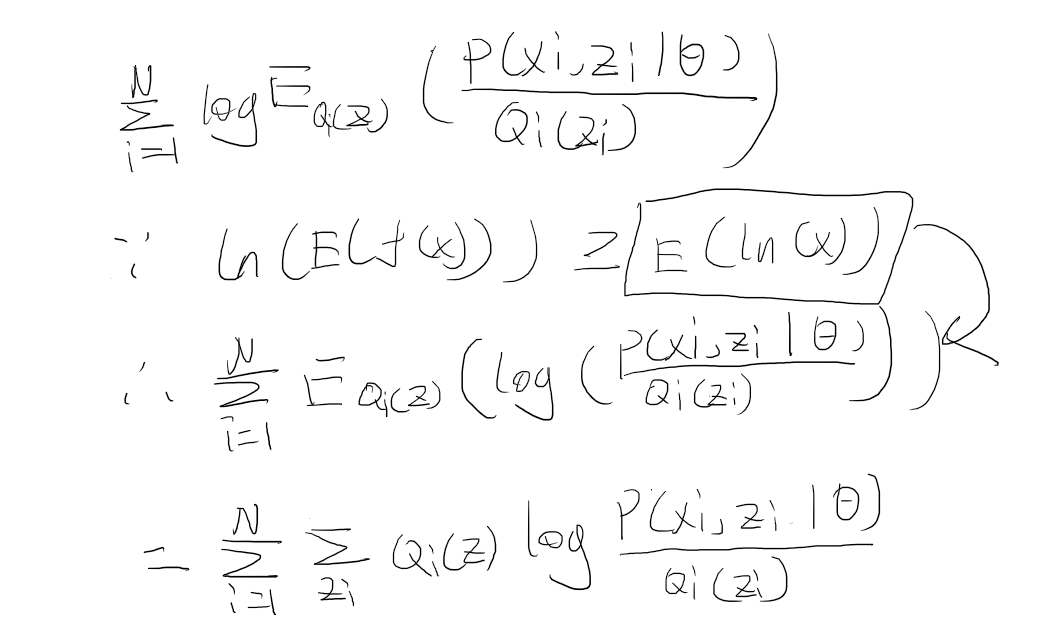 \sum_{i=1}^{N} log E_{Q_i(z)} ( P(xi, zi | θ) / Qi(zi) )
∵ ln(E(f(x))) ≥ E(ln(x))
∴ \sum_{i=1}^{N} E_{Q_i(z)} ( log ( P(xi, zi | θ) / Qi(zi) ) )
= \sum_{i=1}^{N} \sum_{zi} Qi(z) log P(xi, zi | θ) / Qi(zi)